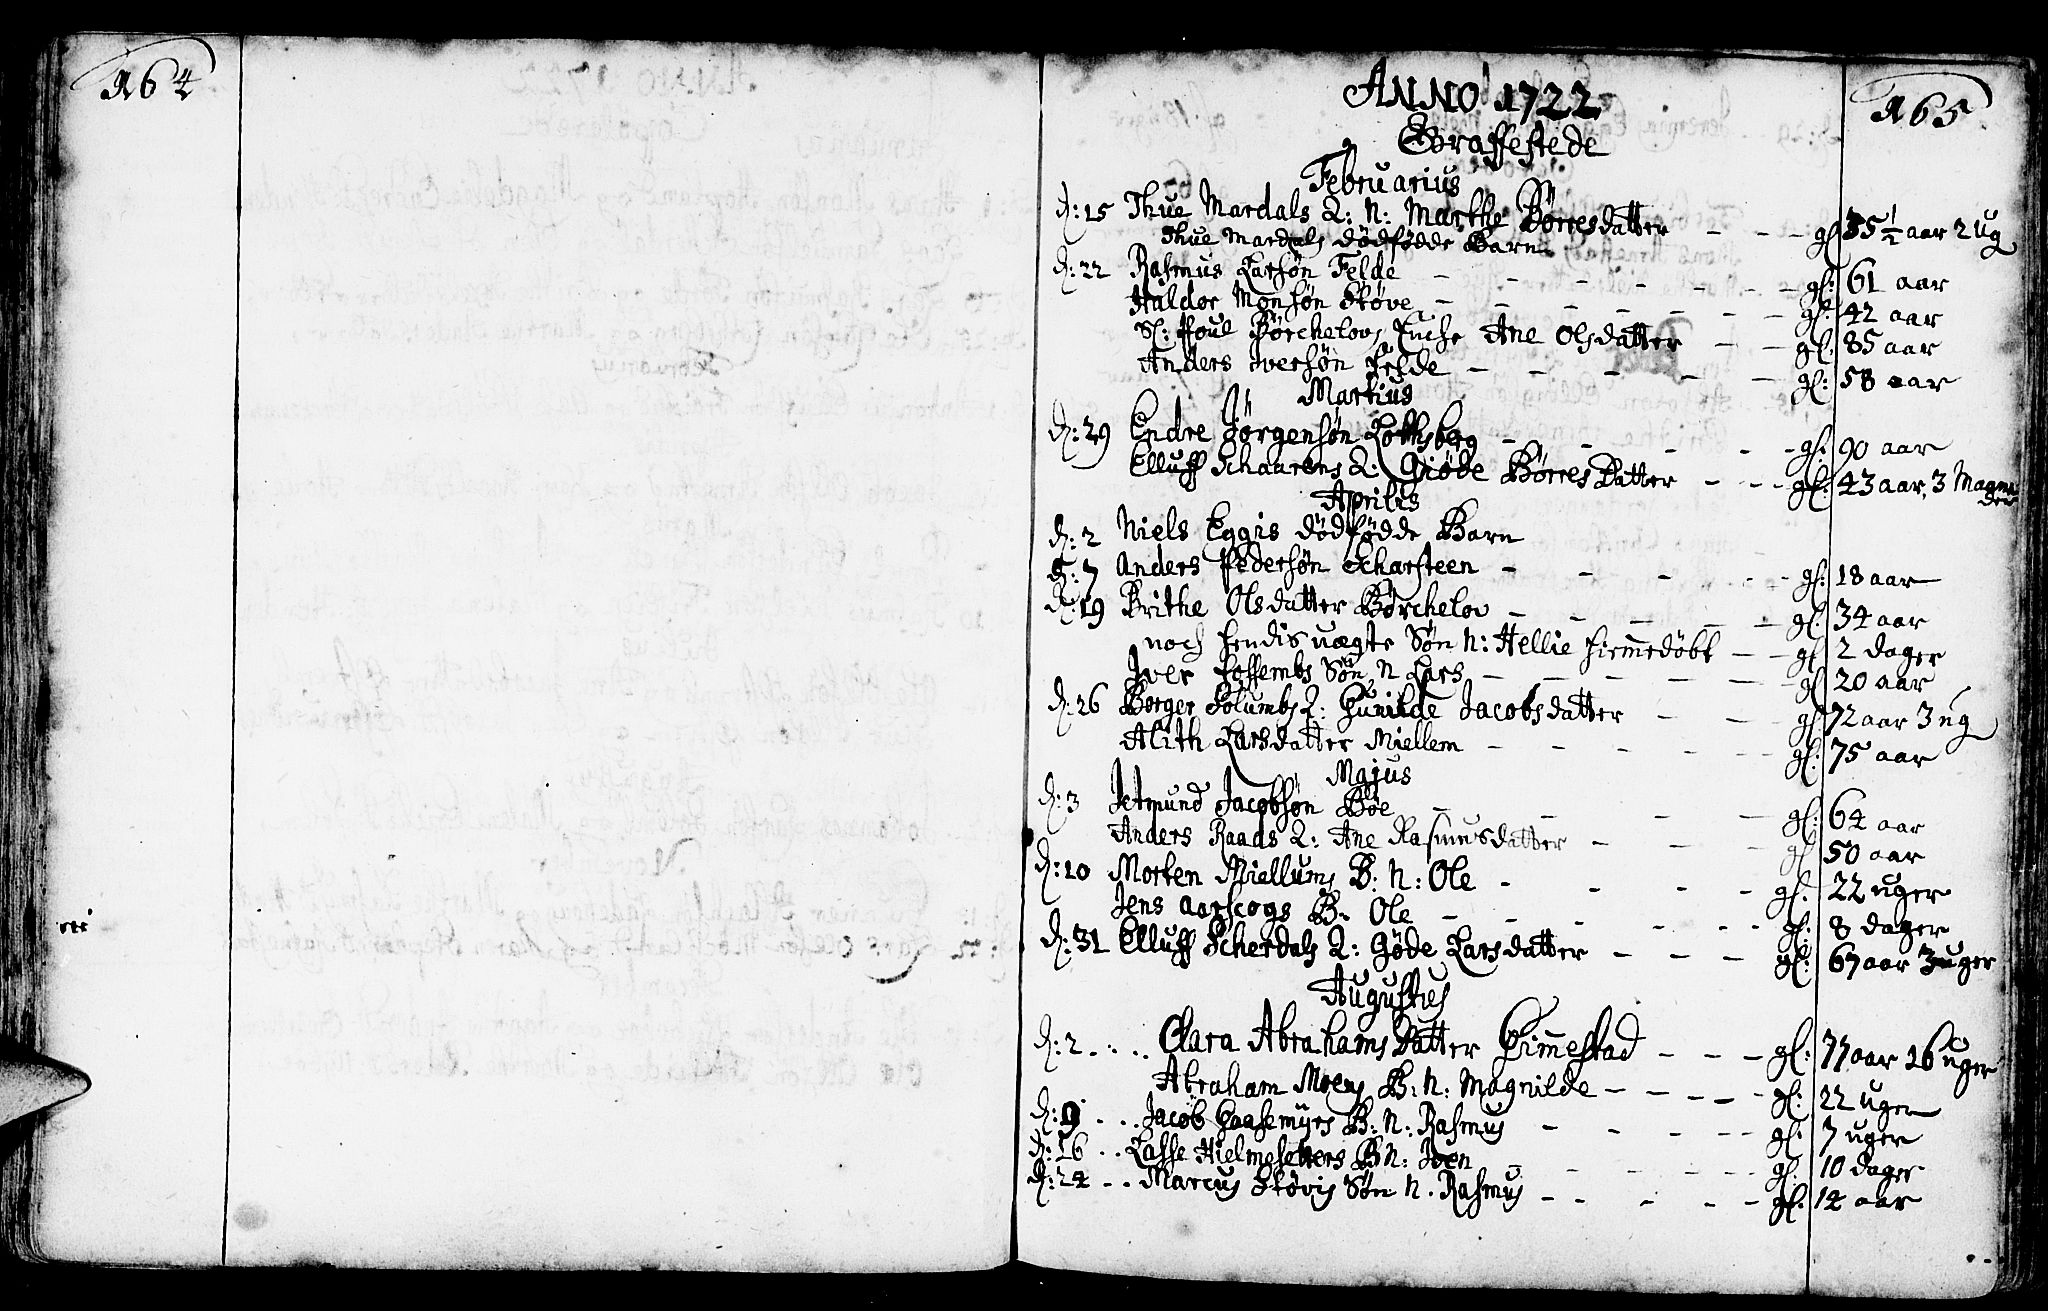 164
165
ANNO 1722
Graffestede
Februarius
d: 15 Thue Mardals Q: N: Marthe Børresdatter - - - gl: 35 1/2 aar 2 ug
Thue Mardals dødfødde Barn
d: 22 Rasmus Larsøn Felde - - - - - - gl: 61 aar
Haldor Monsøn Støve - - - - - - gl: 42 aar
Sl: Poul Børchelovs Ane Olsdatter - - gl: 85 aar
Anders Iversøn Felde - - - - - gl: 58 aar
Martius
d: 29 Endre Jørgensøn - - - - - gl: 90 aar
Elluff Schaarens Q: Giøde BørresDatter - - - gl: 43 aar, 3 Maaneder
Aprilis
d: 2 Niels Eggis dødfødde Barn
d: 7 Anders Pedersøn Scharsteen - - - - - gl: 18 aar
d: 19 Brithe Olsdatter Børchelov - - - - - gl: 34 aar
noch hendis uægte Søn N: Hellie hiemedøbt - - gl: 2 dager
Iver Søn N Lars - - - - - - gl: 20 aar
d: 26 Børger Q: Gunilde Jacobsdatter - - - gl: 72 aar 3 ug
Alith Larsdatter Miellem - - - - - gl: 75 aar
Majus
d: 3 Jetmund Jacobsøn Bøe - - - - gl: 64 aar
Anders Raads Q: Ane Rasmusdatter - - - gl: 50 aar
d: 10 Morten Miellums B: N: Ole - - - - gl: 22 uger
Jens Aarscogs B: Ole - - - - - gl: 8 dager
d: 31 Elluff Scherdals Q: Gøde Larsdatter - - - gl: 67 aar 3 uger
Augustus
d: 2 . . . . Clara AbrahamsDatter Gimmestad - - - gl: 77 aar 16 uger
Abraham Moens B: N: Magnilde - - - - - gl: 22 uger
d: 9 . . . Jacob Haasemyrs B: N: Rasmus - - - - gl: 7 uger
d: 16 . . Lasse Hielmesetters B N: Iven - - - - - gl: 10 dager
d: 24 - . . Marcus Støvis Søn N. Rasmus - - - - - gl: 14 aar